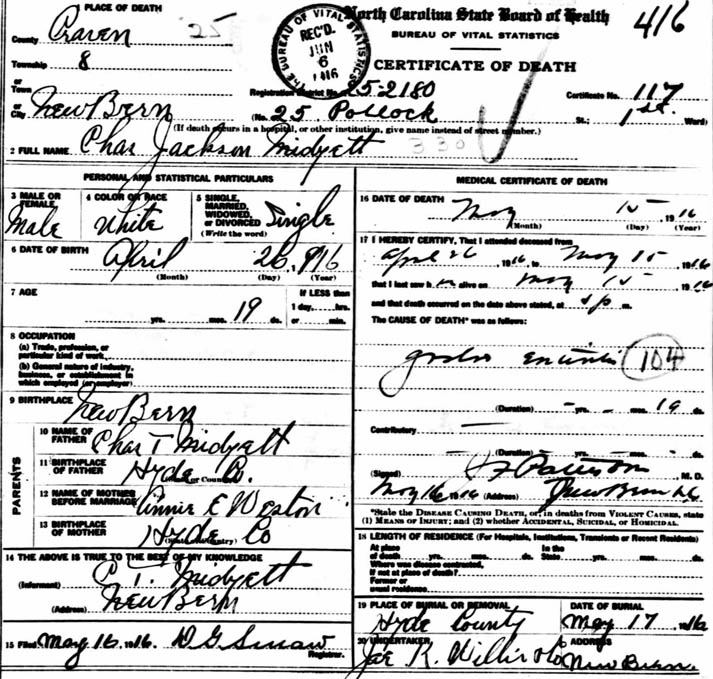 PLACE OF DEATH
County Craven 25
Township 8
or
Town
or
City New Bern
North Carolina State Board of Health 416
BUREAU OF VITAL STATISTICS
CERTIFICATE OF DEATH
THE BUREAU OF VITAL STATISTICS
REC'D.
JUN
6
Registration District No. 25-2180 Certificate No. 117
(No. 25 Pollock St.; 1st. Ward)
(If death occurs in a hospital, or other institution, give name instead of street number.)
2 FULL NAME Chas Jackson Midyett 330
PERSONAL AND STATISTICAL PARTICULARS
3 MALE OR FEMALE Male
4 COLOR OR RACE White
5 SINGLE, MARRIED, WIDOWED, or DIVORCED Single
(Write the word)
6 DATE OF BIRTH April 26, 916
(Month) (Day) (Year)
7 AGE yrs. mos. 19 ds.
If LESS than
1 day, hrs.
or min.
8 OCCUPATION
(a) Trade, profession, or
particular kind of work
(b) General nature of industry,
business, or establishment in
which employed (or employer)
9 BIRTHPLACE New Bern
PARENTS
10 NAME OF FATHER Chas T Midyett
11 BIRTHPLACE OF FATHER Hyde Co.
12 NAME OF MOTHER BEFORE MARRIAGE Annie E Weston
13 BIRTHPLACE OF MOTHER Hyde Co
14 THE ABOVE IS TRUE TO THE BEST OF MY KNOWLEDGE
(Informant) C. T. Midyett
(Address) New Bern
15 Filed May 16, 1916.
Registrar.
MEDICAL CERTIFICATE OF DEATH
16 DATE OF DEATH May 15, 1916
(Month) (Day) (Year)
17 I HEREBY CERTIFY, That I attended deceased from
April 26 1916, to May 15 1916
that I last saw h m alive on May 15 1916
and that death occurred on the date above stated, at p m.
The CAUSE OF DEATH* was as follows:
104
(Duration) yrs. mos. 19 ds.
Contributory
(Duration) yrs. mos. ds.
(Signed) M. D.
May 16 1916 (Address) New Bern NC
*State the DISEASE CAUSING DEATH, or in deaths from VIOLENT CAUSES, state
(1) MEANS OF INJURY; and (2) whether ACCIDENTAL, SUICIDAL, or HOMICIDAL.
18 LENGTH OF RESIDENCE (For Hospitals, Institutions, Transients or Recent Residents)
At place of death yrs. mos. ds. In the State yrs. mos. ds.
Where was disease contracted,
If not at place of death?
Former or
usual residence
19 PLACE OF BURIAL OR REMOVAL Hyde County
DATE OF BURIAL May 17, 1916
20 UNDERTAKER Joe K. Willis
ADDRESS New Bern.